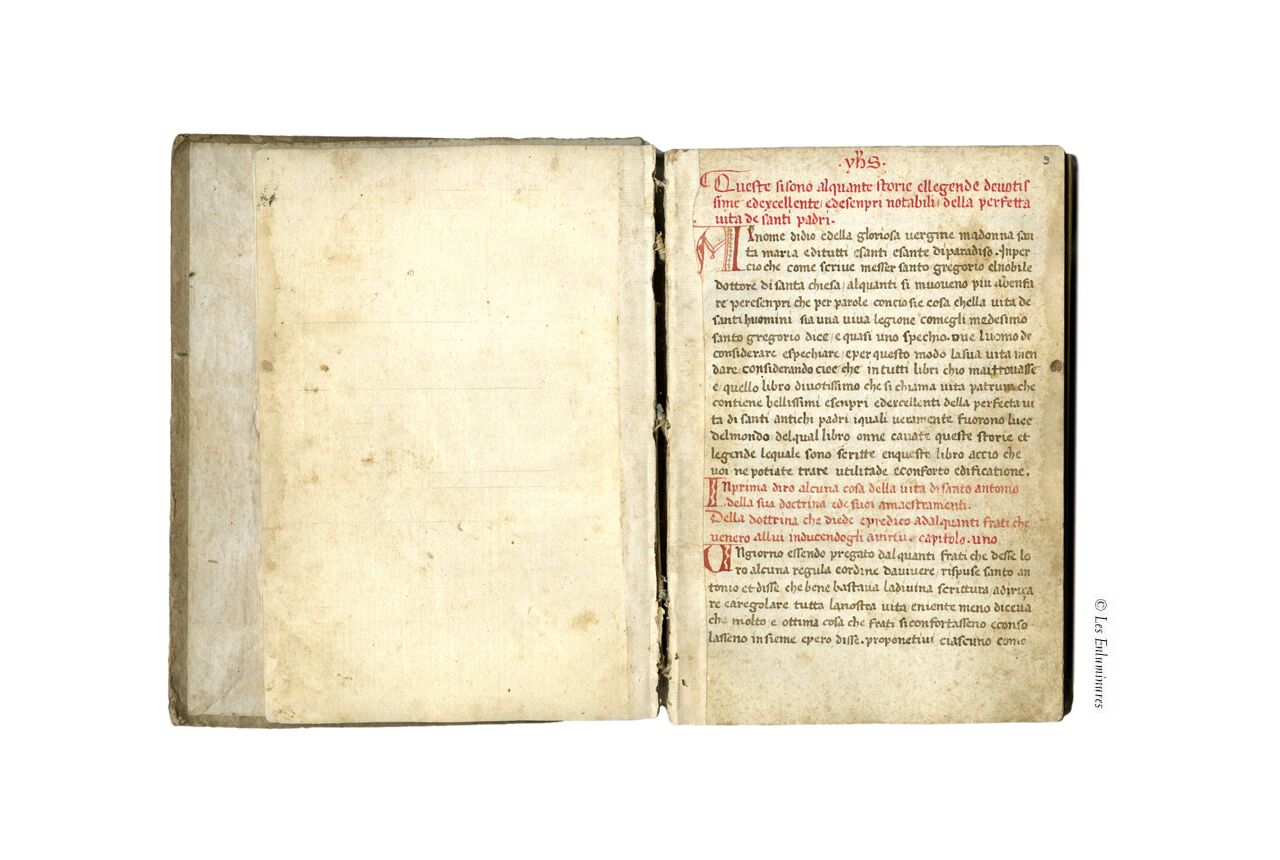 .yhs.
9
Queste sisono alquante storie ellegende deuotis-
sime edexcellente/ edesenpri notabili/ della perfetta
uita de santi padri.
AL nome didio edella gloriosa uergine madonna san
ta maria editutti esanti esante diparadiso. Inper
cio che come scriue messer santo gregorio elnobile
dottore di santa chiesa/ alquanti si muoueno piu abenfa
re peresenpri che per parole concio sie cosa chella uita de
santi huomini sia una uiua legione comegli medesimo
santo gregorio dice/ e quasi uno spechio. oue luomo de
considerare espechiare/ eper questo modo lasua uita men
dare/ considerando cioe che in tutti libri chio maitrouasse
e quello libro diuotissimo che si chiama uita patrum che
contiene bellissimi esenpri edexcellenti della perfecta ui
ta di santi antichi padri iquali ueramente fuorono luce
delmondo delqual libro onne cauate queste storie et
legende lequale sono scritte enquesto libro accio che
uoi ne potiate trare utilitade econforto edificatione.
INprima diro alcuna cosa della uita disanto antonio
della sua doctrina ede suoi amaestramenti.
Della dottrina che diede epredico adalquanti frati che
uenero allui inducendogli auirtu. capitolo. uno
UNgiorno essendo pregato dalquanti frati che desse lo
ro alcuna regula eordine dauiuere/ rispuse santo an
tonio et disse che bene bastaua ladiuina scrittura/ adiriça
re earegolare tutta lanostra uita/ eniente meno diceua
che molto e ottima cosa che frati siconfortasseno econso
lasseno insieme epero disse. proponetiui ciascuno come
© Les Enluminures